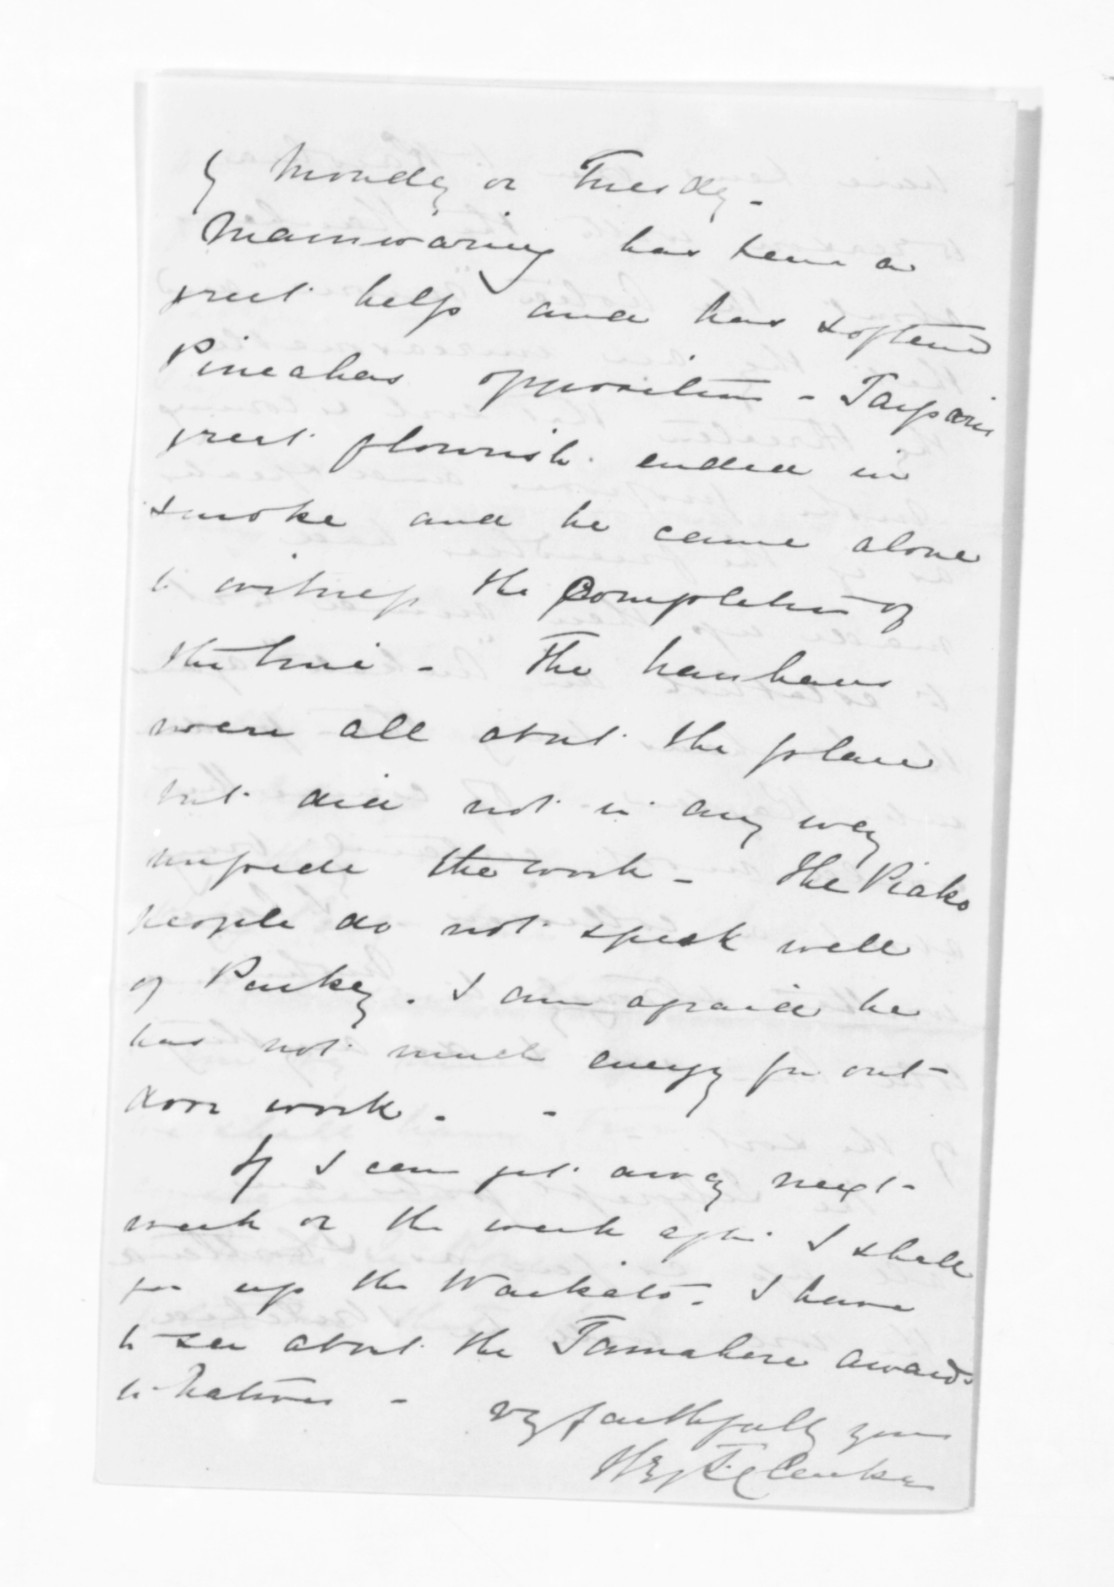 by Monday or Tuesday -
Mainwaring has been a
great help and has softened
Pineahas opposition - Taiparis
great flourish ended in
smoke and he came alone
to witness the completion of
the line - The hauhaus
were all about the place
but did not in any way
impede the work - The Piako
people do not speak well
of Parkey. I am afraid he
has not much energy for out-
door work - -
If I can get away next
week or the week after I shall
go up the Waikato - I have
to see about the Tamahere awards
to Natives -
vy faithfully yours
H T Clarke